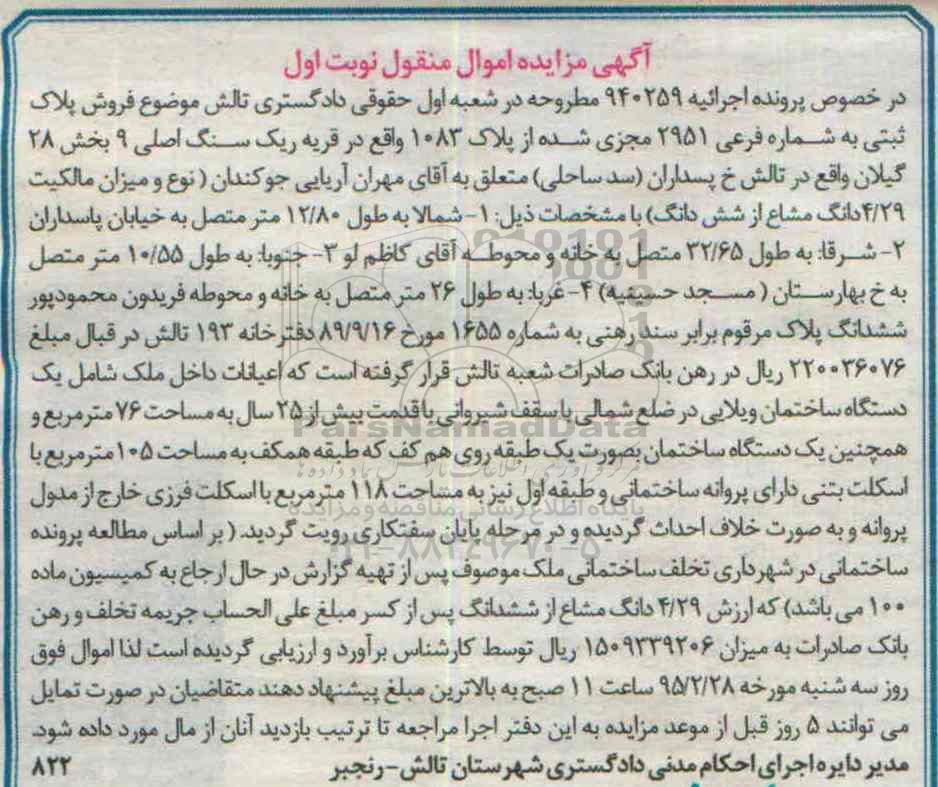 آگهی مزایده اموال منقول نوبت اول
در خصوص پرونده اجرائیه ۹۴۰۲۵۹ مطروحه در شعبه اول حقوقی دادگستری تالش موضوع فروش پلاک
ثبتی به شماره فرعی ۲۹۵۱ مجزی شده از پلاک ۱۰۸۳ واقع در قریه ریک سنگ اصلی ۹ بخش ۲۸
گیلان واقع در تالش خ پسداران (سد ساحلی) متعلق به آقای مهران آریایی جوکندان ( نوع و میزان مالکیت
۴/۲۹دانگ مشاع از شش دانگ) با مشخصات ذیل: ۱- شمالا به طول ۱۲/۸۰ متر متصل به خیابان پاسداران
۲- شرقا: به طول ۳۲/۶۵ متصل به خانه و محوطه آقای کاظم لو ۳- جنوبا: به طول ۱۰/۵۵ متر متصل
به خ بهارستان ( مسجد حسینیه) ۴- غربا: به طول ۲۶ متر متصل به خانه و محوطه فریدون محمودپور
ششدانگ پلاک مرقوم برابر سند رهنی به شماره ۱۶۵۵ مورخ ۸۹/۹/۱۶ دفترخانه ۱۹۳ تالش در قبال مبلغ
۲۲۰۰۳۶۰۷۶ ریال در رهن بانک صادرات شعبه تالش قرار گرفته است که اعیانات داخل ملک شامل یک
دستگاه ساختمان ویلایی در ضلع شمالی با سقف شیروانی با قدمت بیش از ۲۵ سال به مساحت ۷۶ مترمربع و
همچنین یک دستگاه ساختمان بصورت یک طبقه روی هم کف که طبقه همکف به مساحت ۱۰۵ مترمربع با
اسکلت بتنی دارای پروانه ساختمانی و طبقه اول نیز به مساحت ۱۱۸ مترمربع با اسکلت فرزی خارج از مدول
پروانه و به صورت خلاف احداث گردیده و در مرحله پایان سفتکاری رویت گردید. ( بر اساس مطالعه پرونده
ساختمانی در شهرداری تخلف ساختمانی ملک موصوف پس از تهیه گزارش در حال ارجاع به کمیسیون ماده
۱۰۰ می باشد) که ارزش ۴/۲۹ دانگ مشاع از ششدانگ پس از کسر مبلغ علی الحساب جریمه تخلف و رهن
بانک صادرات به میزان ۱۵۰۹۳۳۹۲۰۶ ریال توسط کارشناس برآورد و ارزیابی گردیده است لذا اموال فوق
روز سه شنبه مورخه ۹۵/۲/۲۸ ساعت ۱۱ صبح به بالاترین مبلغ پیشنهاد دهند متقاضیان در صورت تمایل
می توانند ۵ روز قبل از موعد مزایده به این دفتر اجرا مراجعه تا ترتیب بازدید آنان از مال مورد داده شود.
مدیر دایره اجرای احکام مدنی دادگستری شهرستان تالش-رنجبر ۸۲۲
ParsNamadData
پایگاه اطلاع رسانی مناقصه و مزایده